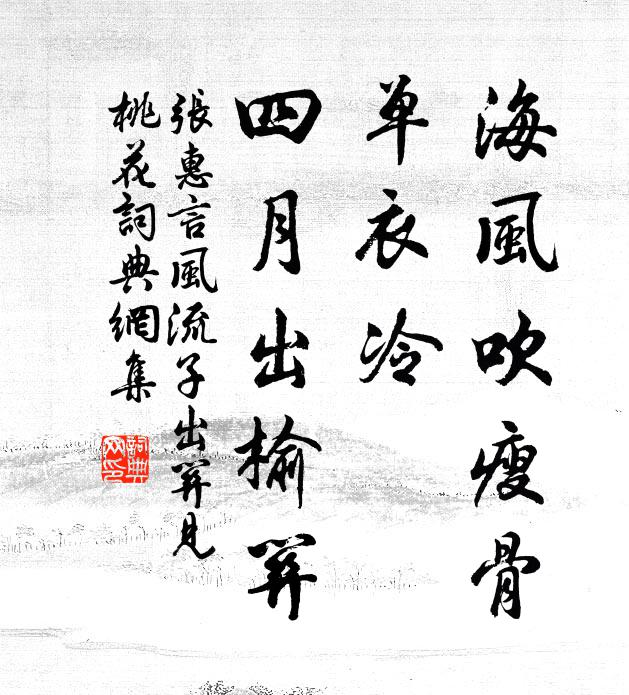 海風吹瘦骨
單衣冷
四月出榆關
張惠言風流子出關見
桃花詞典網集
詞典
网印